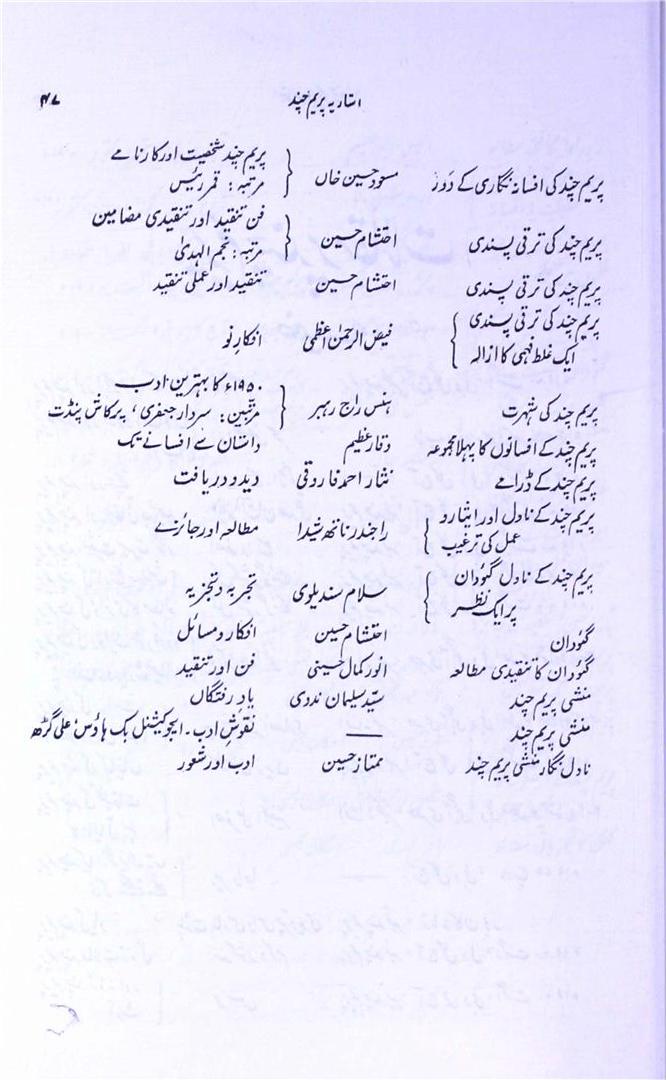 اشاریہ پریم چند ۴۷
پریم چند شخصیت اور کارنامے
پریم چند کی افسانہ نگاری کے دَور مسعود حسین خاں
مرتبہ: قمر رئیس
فن تنقید اور تنقیدی مضامین
پریم چند کی ترقی پسندی احتشام حسین
مرتبہ: نجم الہدیٰ
پریم چند کی ترقی پسندی احتشام حسین تنقید اور عملی تنقید
پریم چند کی ترقی پسندی
فیض الرحمٰن اعظمی افکارِ نو
ایک غلط فہمی کا ازالہ
۱۹۵۰ء کا بہترین ادب
پریم چند کی شہرت ہنس راج رہبر مرتبین: سردار جعفری، پرکاش پنڈت
پریم چند کے افسانوں کا پہلا مجموعہ وقار عظیم داستان سے افسانے تک
پریم چند کے ڈرامے نثار احمد فاروقی دید و دریافت
پریم چند کے ناول اور ایثار و
راجندر ناتھ شیدا مطالعہ اور جائزے
عمل کی ترغیب
پریم چند کے ناول گئودان
سلام سندیلوی تجربہ و تجزیہ
پر ایک نظر
گئودان احتشام حسین افکار و مسائل
گئودان کا تنقیدی مطالعہ انور کمال حسینی فن اور تنقید
منشی پریم چند سیّد سلیمان ندوی یادِ رفتگاں
منشی پریم چند —— نقوشِ ادب۔ ایجوکیشنل بک ہاؤس، علی گڑھ
ناول نگار منشی پریم چند ممتاز حسین ادب اور شعور